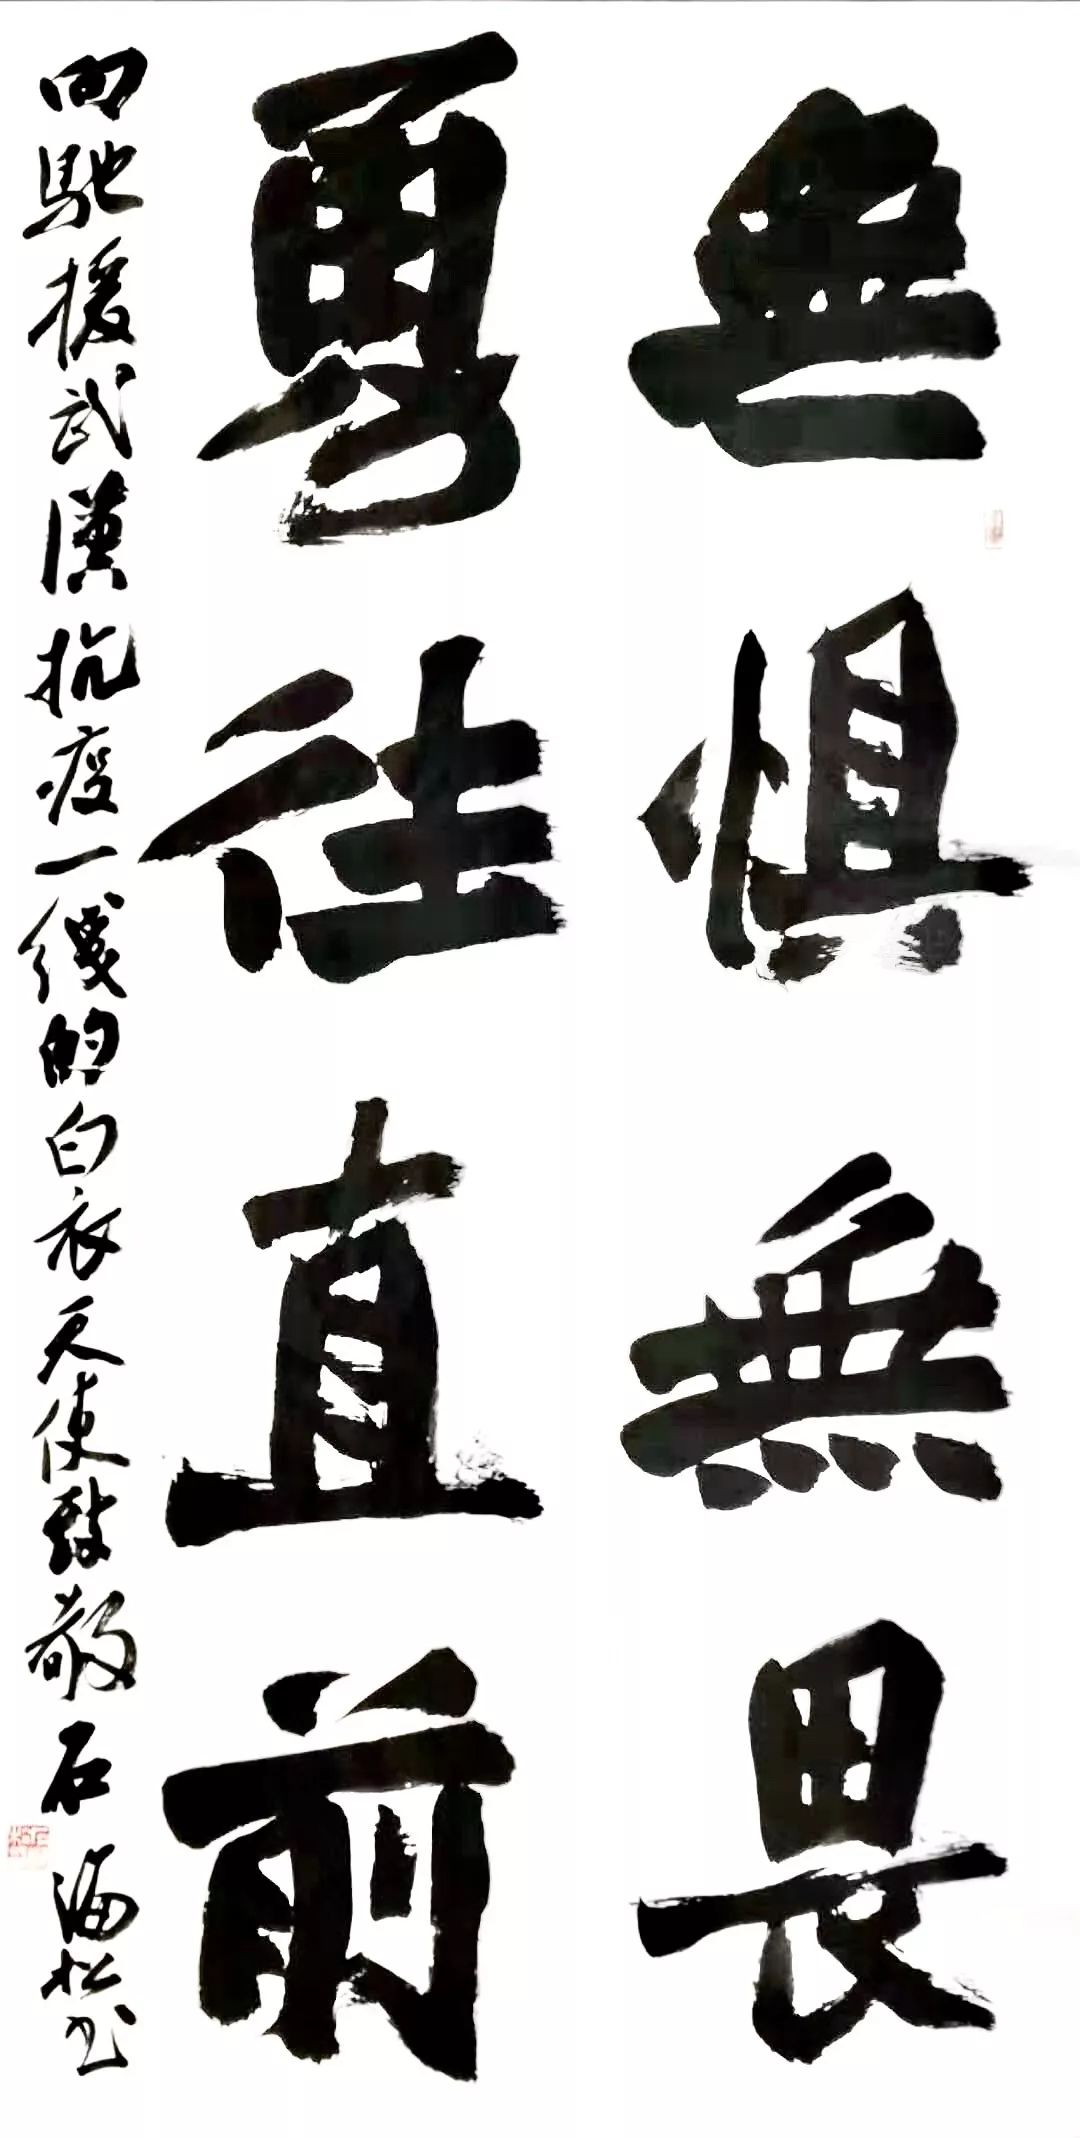 無懼無畏
勇往直前
向馳援武漢抗疫一綫的白衣天使致敬 石海松书